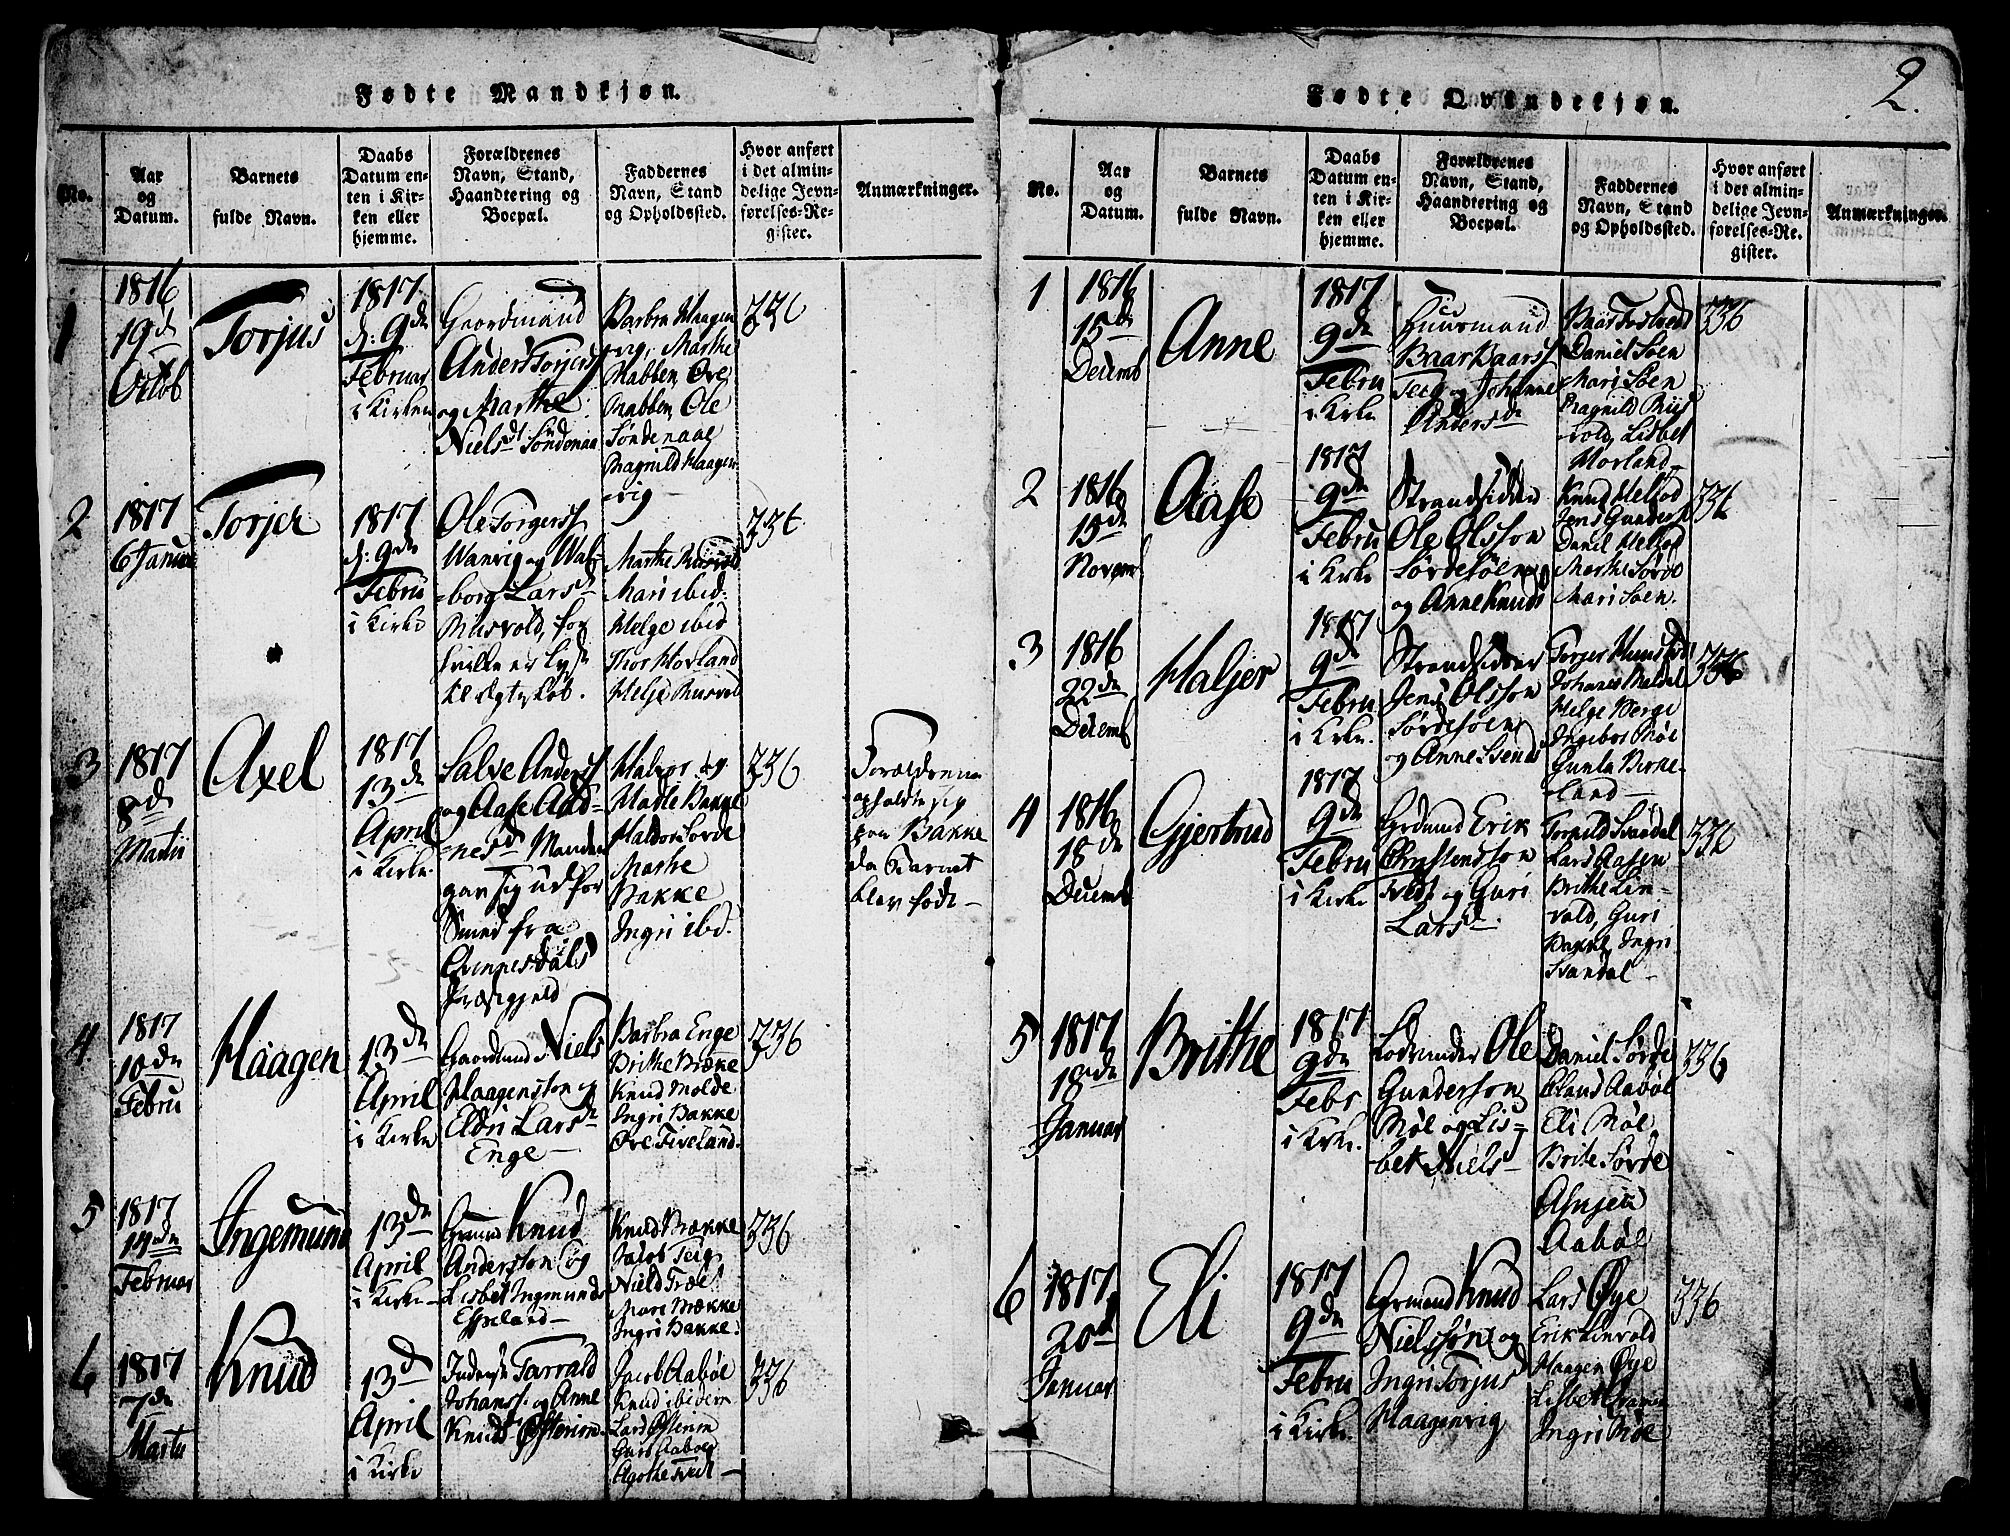 2.
Fødte Mandkjøn.
No.
Aar
og
Datum.
Barnets
fulde Navn.
Daabs
Datum en-
ten i Kir-
ken eller
hjemme.
Forældrenes
Navn, Stand,
Haandtering og
Boepæl.
Faddernes
Navn, Stand
og Opholdssted.
Hvor anført
i det almin-
delige Jevn-
førelses-Re-
gister.
Anmærkninger.
1
1816
19d
Octob
Torjus
1817
d: 9de
Februar
i Kirken
Anders Torjers
og Marthe
Niels
Barbra Haagen
vig, Marthe
Nabben
Ole
Søndenaae
Ragnild Haagen
vig
336
2
1817
6 Januar
Torjer
1817
d: 9de
Febru
i Kirke
Ole Torgers
Wanvig og Wal-
borg Lars
Rusvold, for
hvilke er lyst
til Ægteskab.
Marthe Rusvold
Mari ibid:
Helge ibid
Thor Horland
Helje Rusvold
336
3
1817
8d
Martii
Axel
1817
13de
April
i Kirke
Salve Anders
og Aase Aad-
nesd Manden
gav sig ud for
Smed fra
Qvinnesdals
Præstgjeld
Halvor og
Malle Bakke
Haldor Sorde
Marthe
Bakke
Ingri ibd.
336
Forældrene
opholdte sig
paa Bakke
da Barnet
blev født
4
1817
10de
Febru
Haagen
13de
April
i Kirke
Gaardmd Niels
Haagensson og
Eldri Lars
Enge
Barbra Enge
Brithe Bække
Knud Molde
Ingri Bakke
Ove Fiveland.
336
5
1817
14de
Februar
Ingemund
13de
April
i Kirke
Knud
Andersson og
Lisbet Ingmunds
Espeland
Knud Bække
Jacob Teig
Niels Træe
Mari Bække
Ingri Bakke.
336
6
1817
7de
Martii
Knud
13d
April
i Kirke
Tarrald
Johans. og Anne
Knuds
Jacob Aabøe
Knud ibidem
Lars
Aabøe
336
Fødte Qvindekjøn.
No.
Aar
og
Datum.
Barnets
fulde Navn.
Daabs
Datum en-
ten i Kir-
ken eller
hjemme.
Forældrenes
Navn, Stand,
Haandtering og
Boepæl.
Faddernes
Navn, Stand
og Opholdssted.
Hvor anført
i det almin-
delige Jevn-
førelses-Re-
gister.
Anmærkninger.
1
1816
15de
Decemb
Anne
1817
9de
Febru
i Kirke
Huusmand
Baar Baars
Teig og Johanne
Anders
Daniel Søen
Mari Søen
Ragnild Rus
vold, Lisbet
Horland
336
2
1816
15de
Novem
Aase
1817
9de
Febru
i Kirke
Strandsidder
Ole Olsson
Sørdesøen
og Anne Knuds
Jens Gunders
Marthe Sørde
Mari Søen.
336
3
1816
22de
Decemb
Haljer
1817
9de
Febru
i Kirke
Strandsidder
Jens Olsson
Sørdesøen
og Anne Svends
Helge Berge
Ingebor Møe
Gunla Birke-
land
336
4
1816
18de
Decemb
Gjertrud
1817
9de
Febru
i Kirke
Erik
Christensson
Tvedt og Guri
Lars
Torkild Svandal
Lars Aasen
Brithe Lin-
vold, Guri
Bakke, Ingri
Svandal
336
5
1817
18de
Januar
Brithe
1817
9de
Febr
i Kirke.
Ole
Gunderson
Møe og Lis-
bet Niels
Daniel Sørde
Claus Aabøe
Eli Møe
Brite Sørde
Asnjer
Aabøe
336
6
1817
20d
Januar
Eli
1817
9de
Febru
i Kirke.
Knud
Nielssøn og
Ingri Torjus
Haagenvig
Lars Øye
Erik Linvold
Haagen Øye
Lisbet
Ingri Møe
336